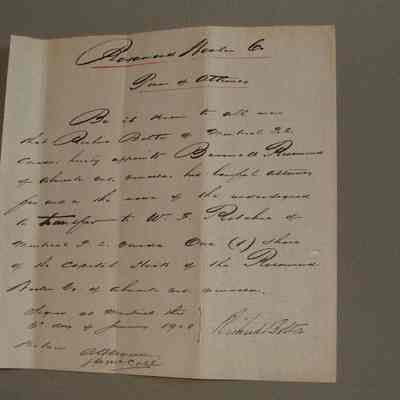 Rosamond Woolen Co
Power of Attorney
Be it known to all men
that Richard Bolton of Montreal P.Q.
Canada hereby appoints Bennett Rosamond
of Almonte Ont. Canada his lawful attorney
for and in the name of the undersigned
to transfer to W. F. Ritchie of
Montreal P.Q. Canada One (1) Share
of the Capital Stock of the Rosamond
Woolen Co of Almonte Ont. Canada.
Signed at Montreal this
day of January
Richard Bolton